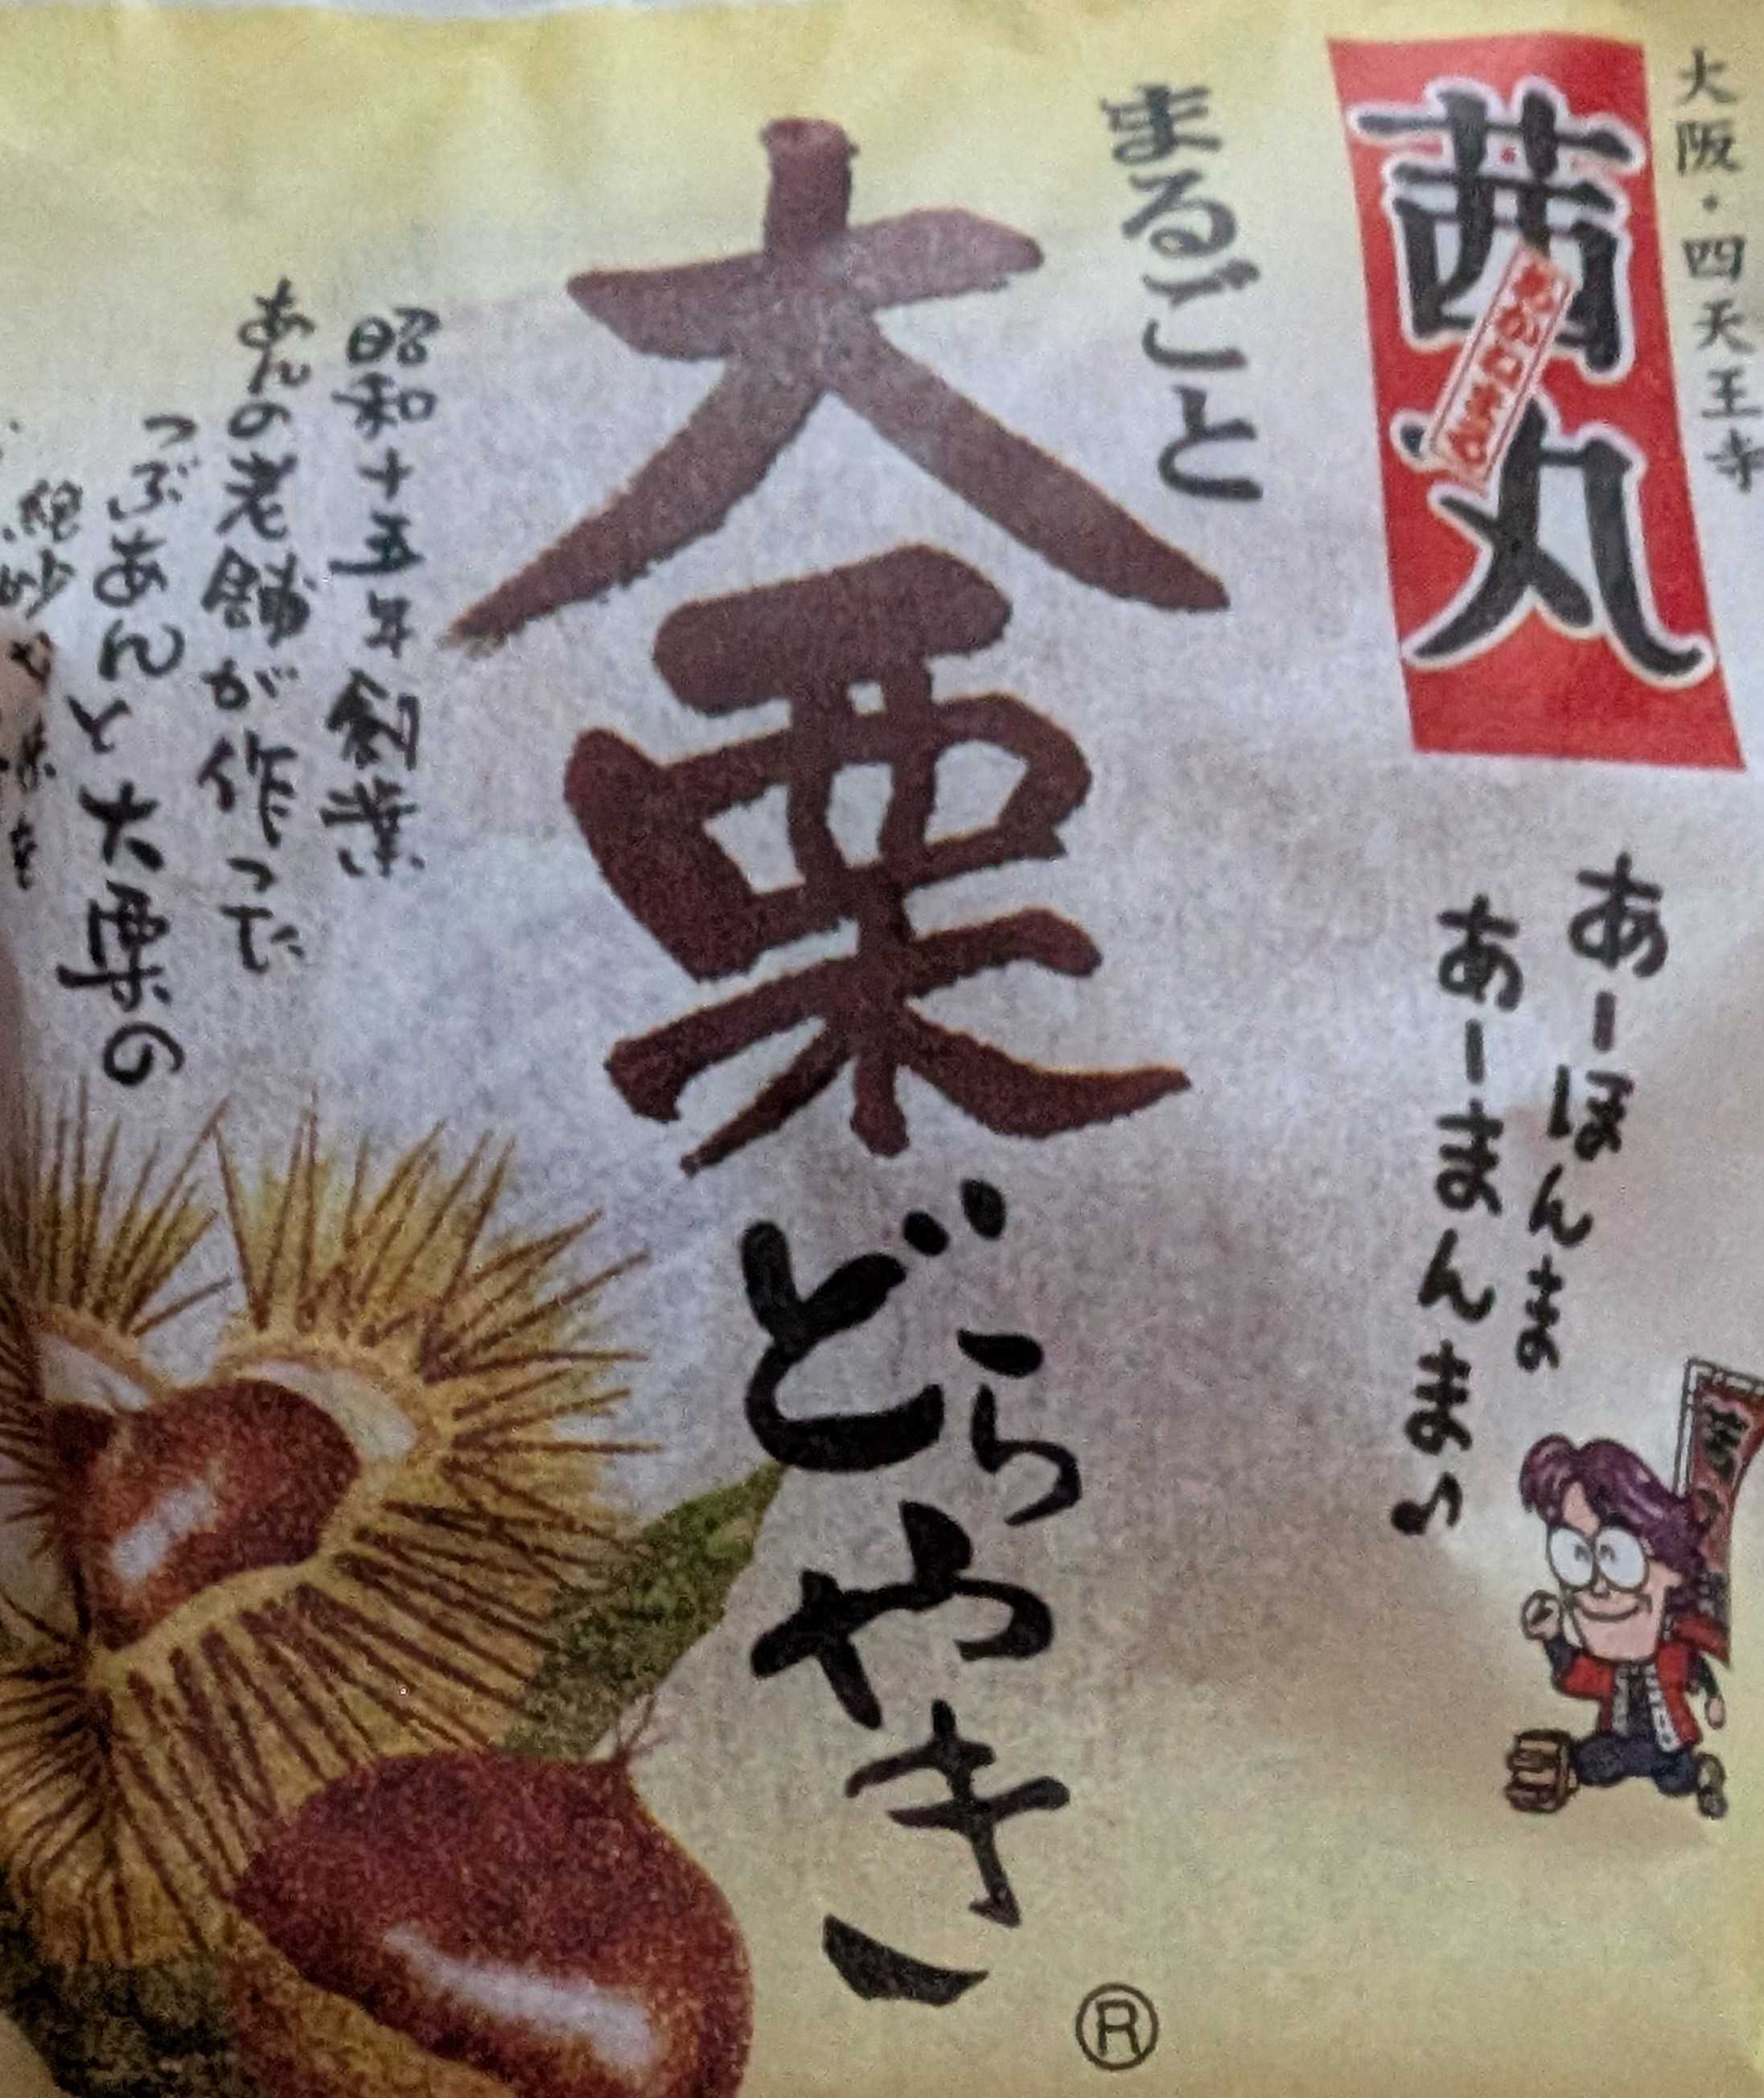 大阪・四天王寺
茜丸
あかねまる
あーほんま
あーまんま♪
まるごと
大栗
どらやき
®
昭和十五年創業
あんの老舗が作った
つぶあんと大栗の
絶妙な味を